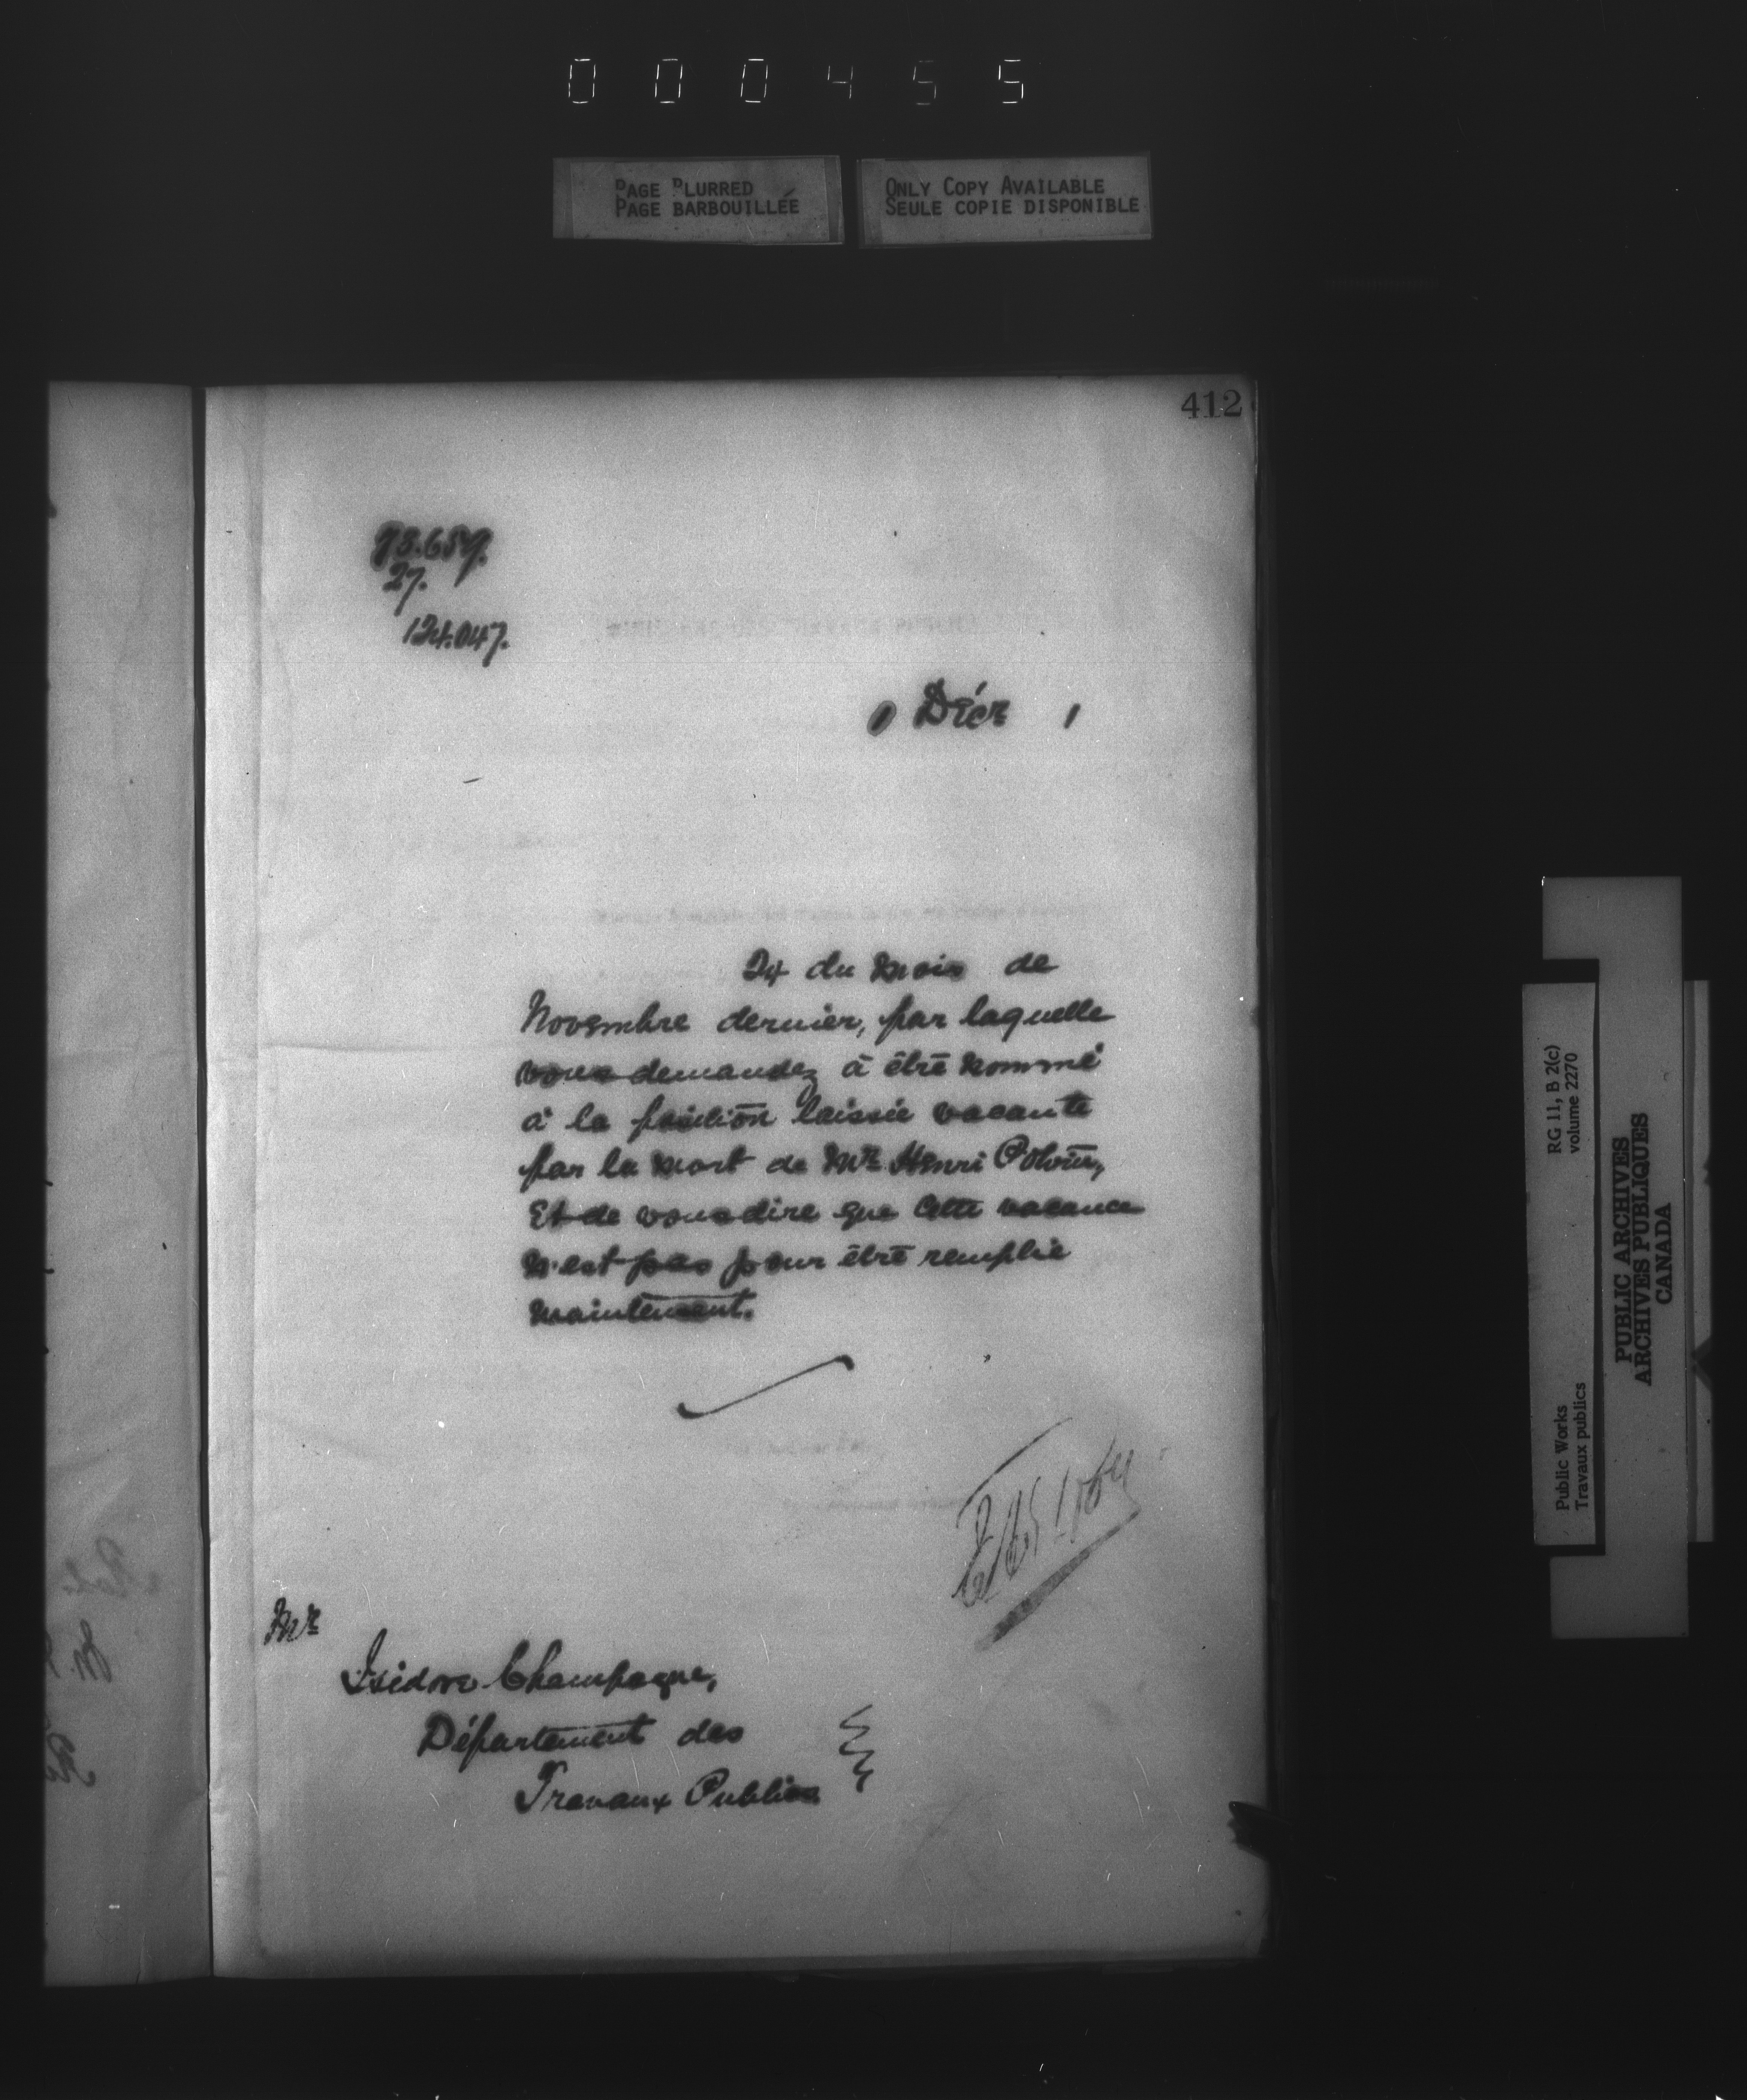 0 0 0 4 5 5
PAGE BLURRED
PAGE BARBOUILLÉE
ONLY COPY AVAILABLE
SEULE COPIE DISPONIBLE
412
27.
124.047.
1 Décr 1
24 du mois de
Novembre dernier, par laquelle
vous demandez à être nommé
à la position laissée vacante
par la mort de Mr Henri Potvin,
Et de vous dire que cette vacance
n'est pas pour être remplie
maintenant.
Mr
Isidore Champagne,
Département des
Travaux Publics
RG 11, B 2(c)
volume 2270
Public Works
Travaux publics
PUBLIC ARCHIVES
ARCHIVES PUBLIQUES
CANADA